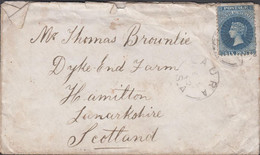 Mr Thomas Brownlie
Dyke End Farm
Hamilton
Lanarkshire
Scotland